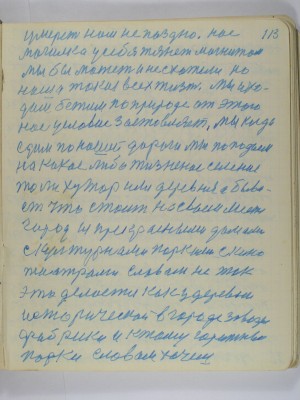 умереть нам не поздно. нас 113
могилка у себя тянет магнитом
мы бы может и не схотели но
наша такая всех жизнь. мы ухо-
дим бежим по природе от этого
нас условие заставляет, мы когда
сядим по нашей дороги мы попадаем
на какое либо жизненое селение
то ли хутор или деревня а быва-
ет что стоит на своем месте
город и с прекрасными домами
с культурными парками с кино
театрами словом не так
это делается как у деревни
исторической в городе заводы
фабрики и к тому гаражные
парки словом хочем